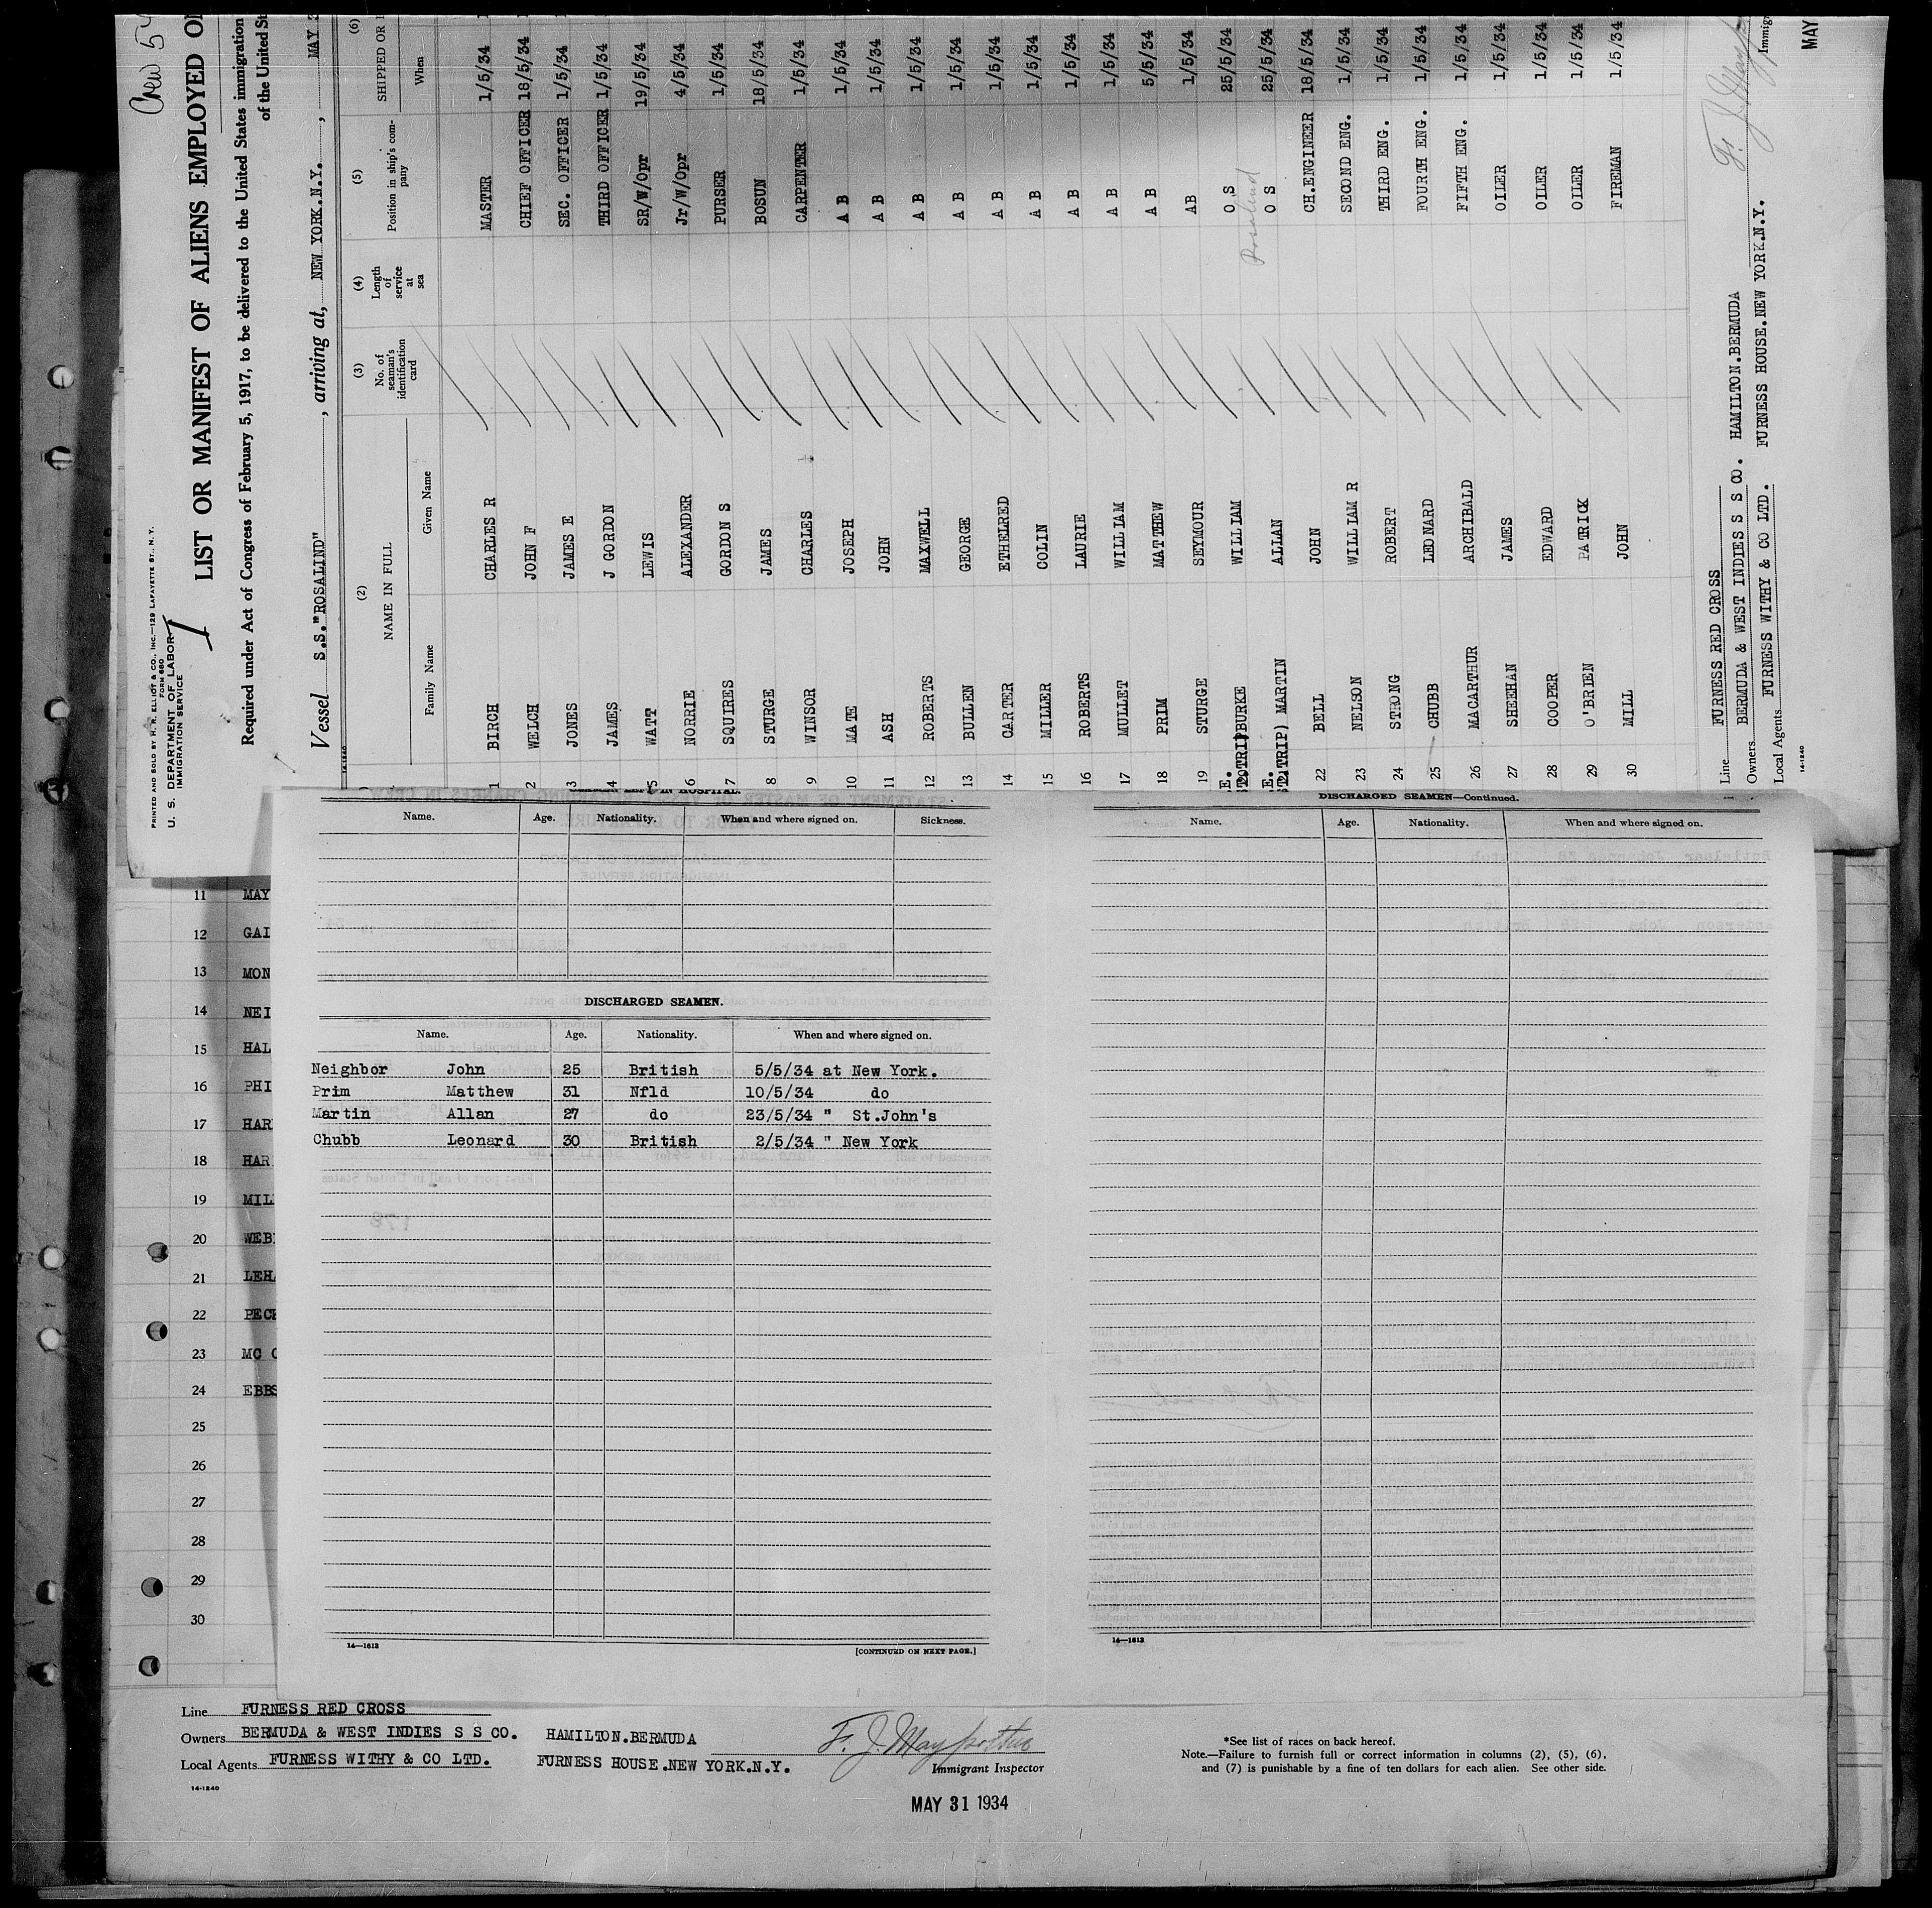 Crew 54
PRINTED AND SOLD BY H. R. ELLIOT & CO., INC.—129 LAFAYETTE ST., N. Y.
FORM 680
U. S. DEPARTMENT OF LABOR
IMMIGRATION SERVICE
1
LIST OR MANIFEST OF ALIENS EMPLOYED O
Required under Act of Congress of February 5, 1917, to be delivered to the United States immigration
of the United St
Vessel S.S."ROSALIND", arriving at, NEW YORK.N.Y., MAY 3
14-1240
(2) (3) (4) (5) (6)
NAME IN FULL No. of seaman's identification card Length of service at sea Position in ship's company SHIPPED OR
Family Name Given Name When
1 BIRCH CHARLES R MASTER 1/5/34
2 WELCH JOHN F CHIEF OFFICER 18/5/34
3 JONES JAMES E SEC. OFFICER 1/5/34
4 JAMES J GORDON THIRD OFFICER 1/5/34
5 WATT LEWIS SR/W/Opr 19/5/34
6 NORRIE ALEXANDER Jr/W/Opr 4/5/34
7 SQUIRES GORDON S PURSER 1/5/34
8 STURGE JAMES BOSUN 18/5/34
9 WINSOR CHARLES CARPENTER 1/5/34
10 MATE JOSEPH A B 1/5/34
11 ASH JOHN A B 1/5/34
12 ROBERTS MAXWELL A B 1/5/34
13 BULLEN GEORGE A B 1/5/34
14 CARTER ETHELRED A B 1/5/34
15 MILLER COLIN A B 1/5/34
16 ROBERTS LAURIE A B 1/5/34
17 MULLET WILLIAM A B 1/5/34
18 PRIM MATTHEW A B 5/5/34
19 STURGE SEYMOUR AB 1/5/34
E. TRIP) BURKE WILLIAM O S 25/5/34
E. TRIP) MARTIN ALLAN Rosalind O S 25/5/34
22 BELL JOHN CH.ENGINEER 18/5/34
23 NELSON WILLIAM R SECOND ENG. 1/5/34
24 STRONG ROBERT THIRD ENG. 1/5/34
25 CHUBB LEONARD FOURTH ENG. 1/5/34
26 MACARTHUR ARCHIBALD FIFTH ENG. 1/5/34
27 SHEEHAN JAMES OILER 1/5/34
28 COOPER EDWARD OILER 1/5/34
29 O'BRIEN PATRICK OILER 1/5/34
30 MILL JOHN FIREMAN 1/5/34
Line FURNESS RED CROSS
Owners BERMUDA & WEST INDIES S S CO. HAMILTON.BERMUDA
Local Agents FURNESS WITHY & CO LTD. FURNESS HOUSE.NEW YORK.N.Y.
Immigr
14-1240
MAY
Name. Age. Nationality. When and where signed on. Sickness.
DISCHARGED SEAMEN.
Name. Age. Nationality. When and where signed on.
Neighbor John 25 British 5/5/34 at New York.
Prim Matthew 31 Nfld 10/5/34 do
Martin Allan 27 do 23/5/34 " St.John's
Chubb Leonard 30 British 2/5/34 " New York
14—1613
[CONTINUED ON NEXT PAGE.]
DISCHARGED SEAMEN—Continued.
Name. Age. Nationality. When and where signed on.
14—1613
11 MAY
12 GAI
13 MON
14 NEI
15 HAL
16 PHI
17 HAR
18 HAR
19 MIL
20 WEB
21 LEH
22 PEC
23 MC
24 EBBS
25
26
27
28
29
30
Line FURNESS RED CROSS
Owners BERMUDA & WEST INDIES S S CO. HAMILTON.BERMUDA
Local Agents FURNESS WITHY & CO LTD. FURNESS HOUSE.NEW YORK.N.Y.
14-1240
F. J. May
Immigrant Inspector
MAY 31 1934
*See list of races on back hereof.
Note.—Failure to furnish full or correct information in columns (2), (5), (6),
and (7) is punishable by a fine of ten dollars for each alien. See other side.